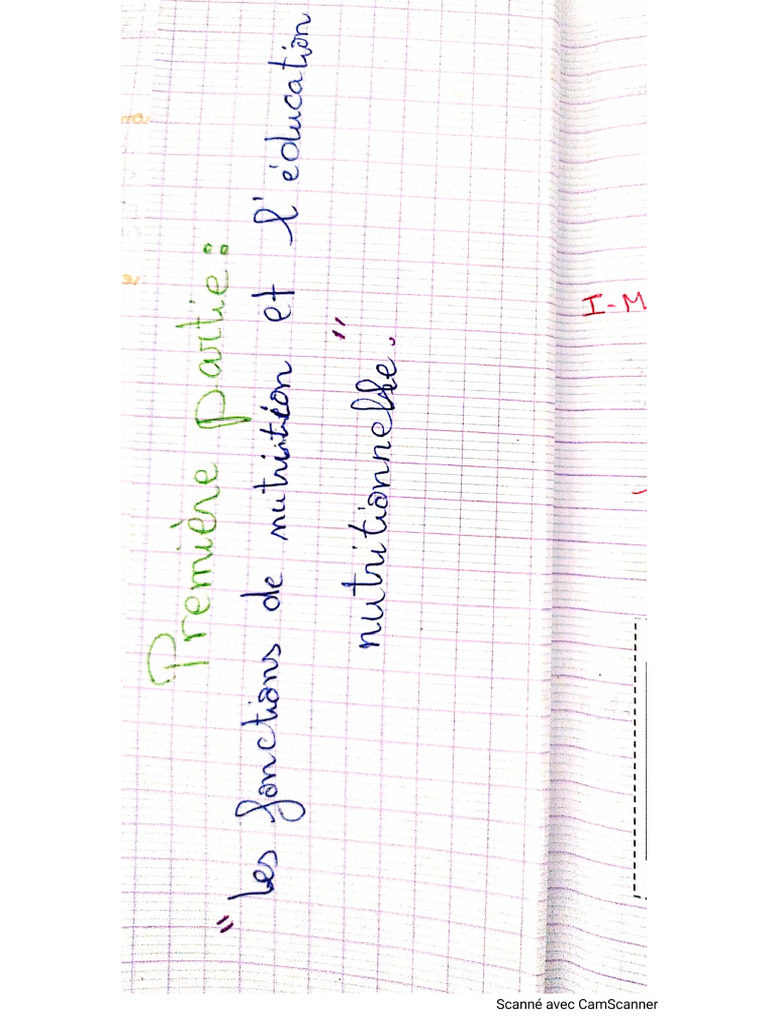 Première partie :
" Les fonctions de nutrition et l'éducation
nutritionnelle. "
I-M
Scanné avec CamScanner